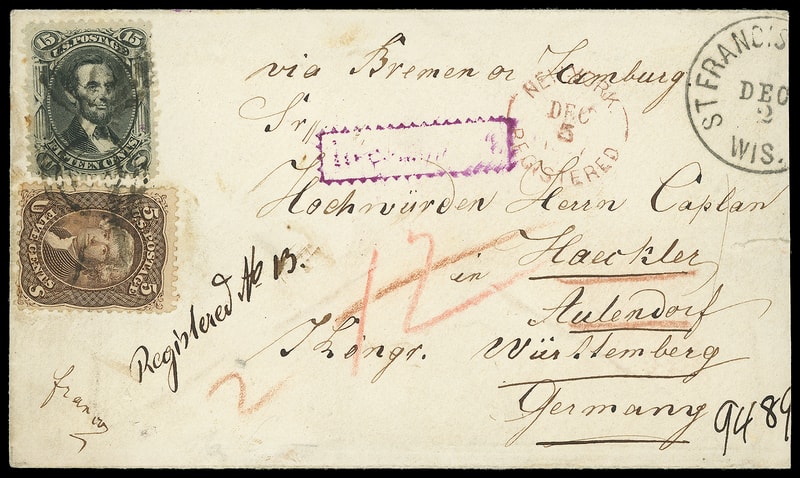 15 U.S. POSTAGE 15
FIFTEEN CENTS.
U.S. POSTAGE
5 FIVE CENTS 5
via Bremen or Hamburg
Sr
NEW YORK
DEC
5
REGISTERED
ST FRANCIS
DEC
2
WIS.
Hochwürden Herrn Caplan
Haeckler
in Aulendorf
Köngr. Württemberg
Germany
Registered No 13.
12
2
franco
9489